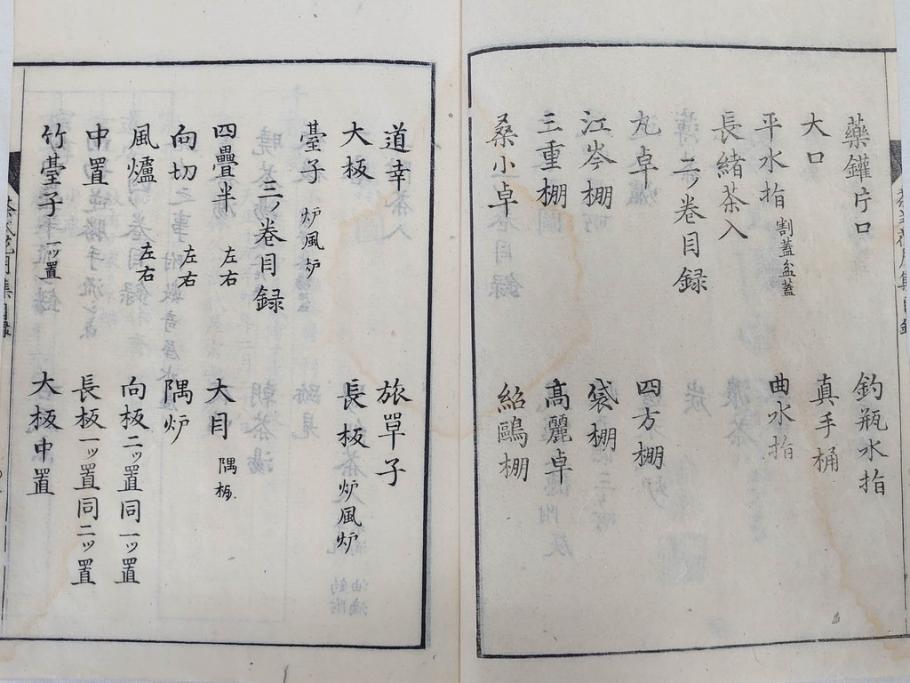 藥鑵片口 釣瓶水指
大口 真手桶
平水指 割蓋盆蓋 曲水指
長緒茶入
二ノ卷目録
丸卓 四方棚
江岑棚 袋棚
三重棚 髙麗卓
桑小卓 紹鷗棚
道幸 旅簞子
大板 長板 炉風炉
臺子 炉風炉
三ノ卷目録
四疊半 左右 大目 隅板
向切 左右 隅炉
風爐 左右 向板二ッ置同一ッ置
中置 長板一ッ置同二ッ置
竹臺子 一ッ置 大板中置